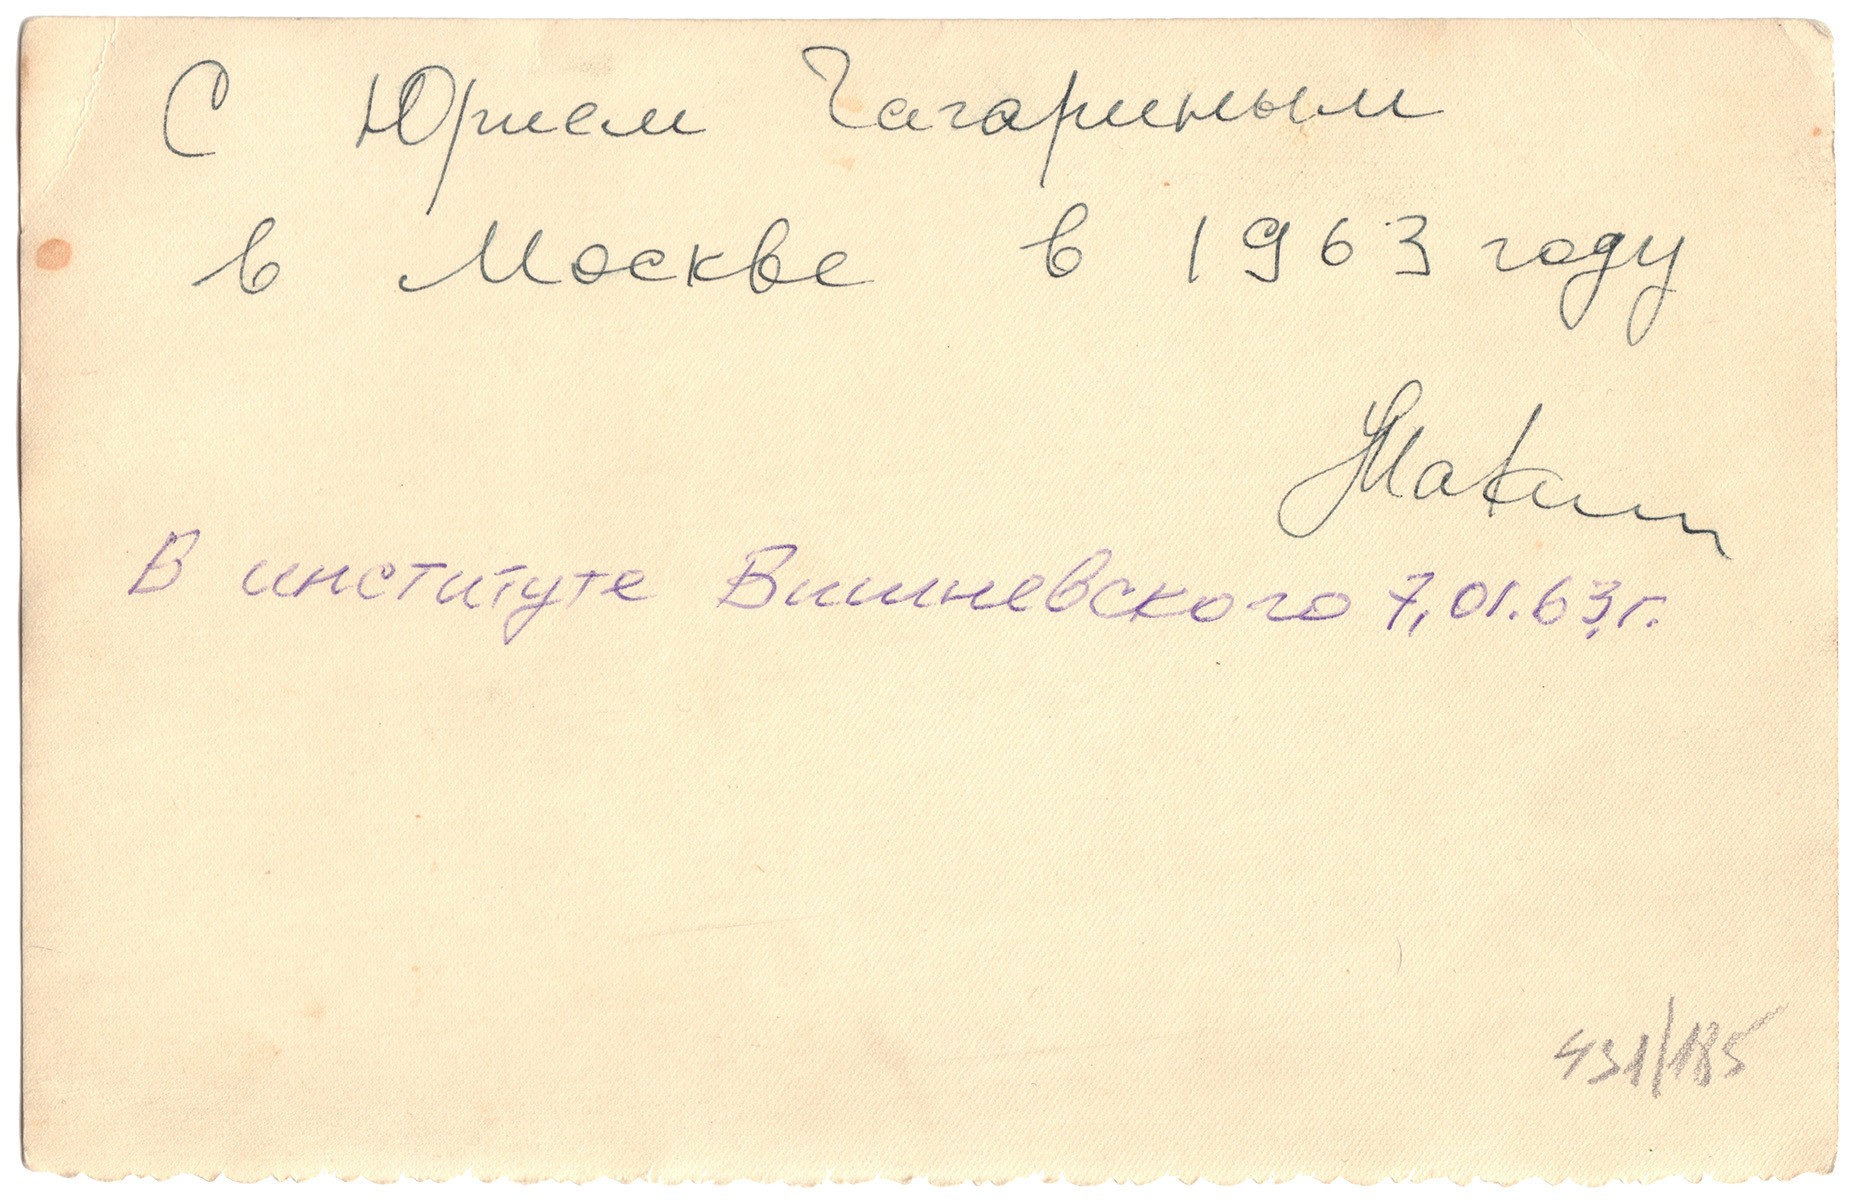 С Юрием Гагариным
в Москве в 1963 году
В институте Вишневского 7.01.63г.
431/185